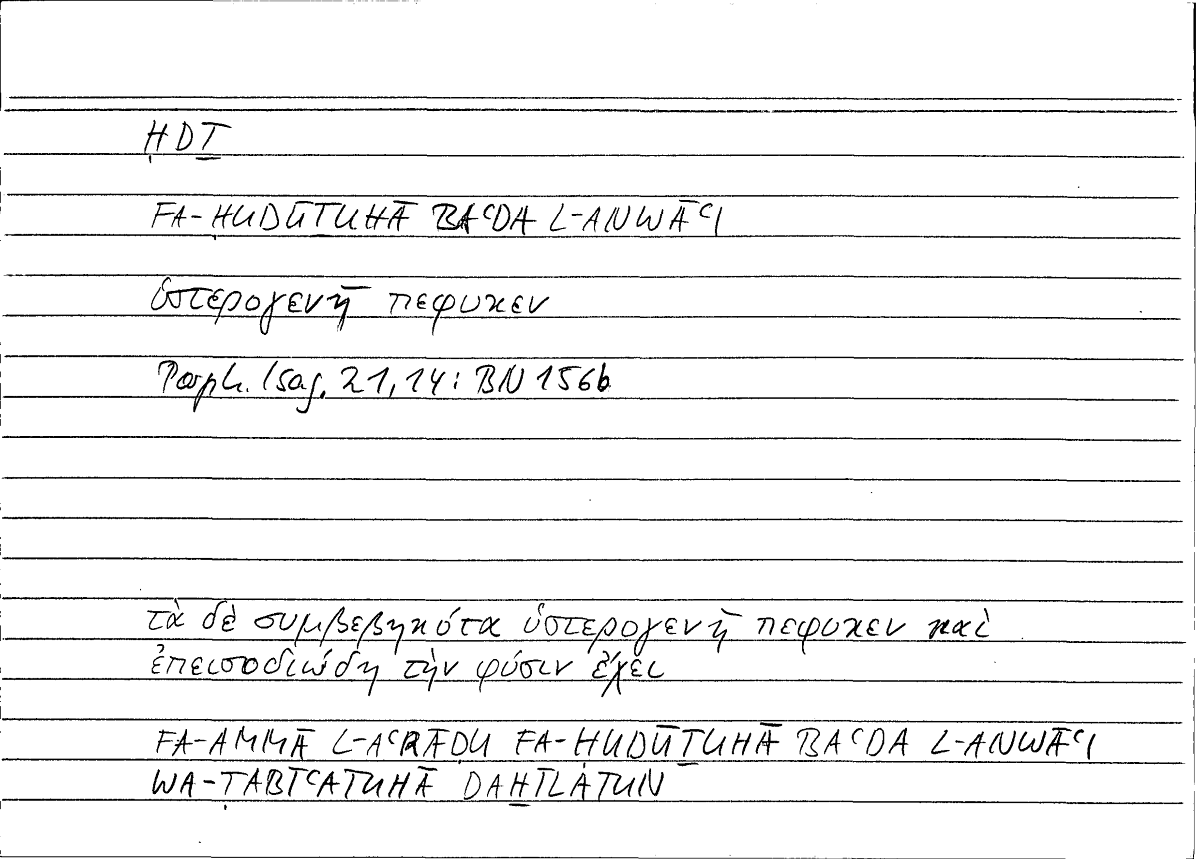 ḤDṮ
FA-ḤUDŪṮUHĀ BAʿDA L-ANWĀʿI
ὑστερογενῆ πεφυκεν
Porph. Isag. 21,14: BN 156b
τὰ δὲ συμβεβηκότα ὑστερογενῆ πεφυκεν καὶ
ἐπεισοδιώδη τὴν φύσιν ἔχει
FA-AMMĀ L-AʿRĀḌU FA-ḤUDŪṮUHĀ BAʿDA L-ANWĀʿI
WA-ṬABĪʿATUHĀ DAḪĪLATUN